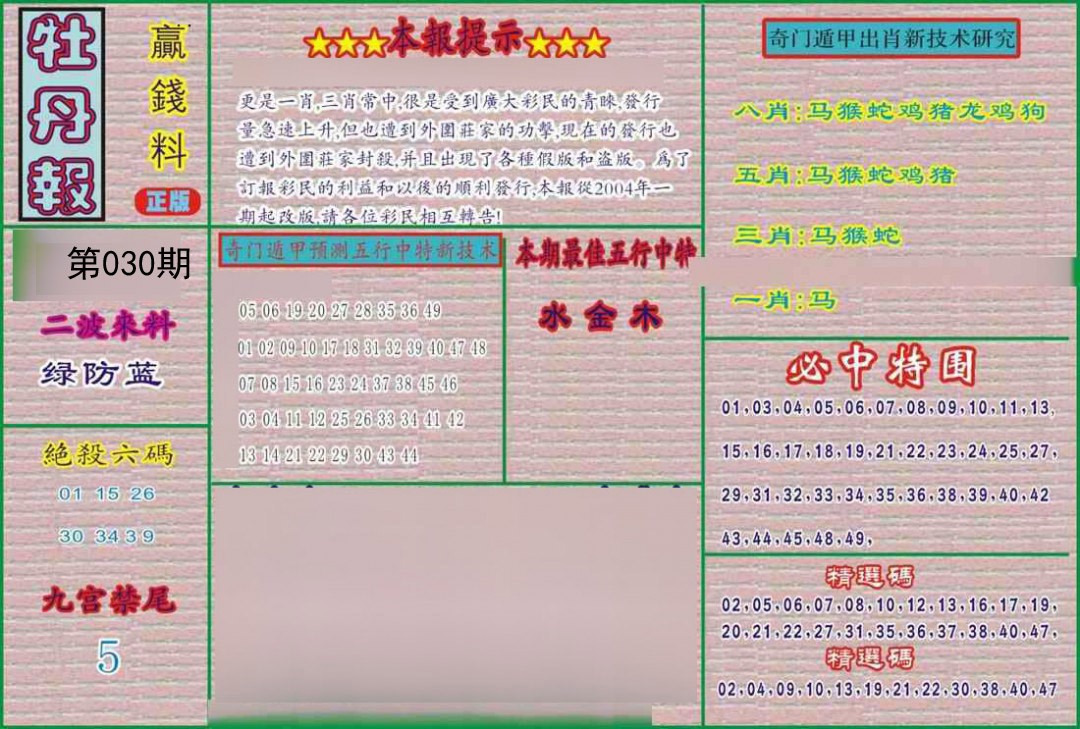 牡丹報
贏錢料
正版
★★★本報提示★★★
更是一肖,三肖常中,很是受到廣大彩民的青睞,發行
量急速上升,但也遭到外圍莊家的功擊,現在的發行也
遭到外圍莊家封殺,并且出現了各種假版和盜版。為了
訂報彩民的利益和以後的順利發行,本報從2004年一
期起改版,請各位彩民相互轉告!
奇门遁甲出肖新技术研究
八肖:马猴蛇鸡猪龙鸡狗
五肖:马猴蛇鸡猪
三肖:马猴蛇
一肖:马
第030期
二波來料
绿防蓝
奇门遁甲预测五行中特新技术
05 06 19 20 27 28 35 36 49
01 02 09 10 17 18 31 32 39 40 47 48
07 08 15 16 23 24 37 38 45 46
03 04 11 12 25 26 33 34 41 42
13 14 21 22 29 30 43 44
本期最佳五行中特
水金木
絕殺六碼
01 15 26
30 34 3 9
九宫禁尾
5
必中特围
01,03,04,05,06,07,08,09,10,11,13,
15,16,17,18,19,21,22,23,24,25,27,
29,31,32,33,34,35,36,38,39,40,42
43,44,45,48,49,
精選碼
02,05,06,07,08,10,12,13,16,17,19,
20,21,22,27,31,35,36,37,38,40,47,
精選碼
02,04,09,10,13,19,21,22,30,38,40,47